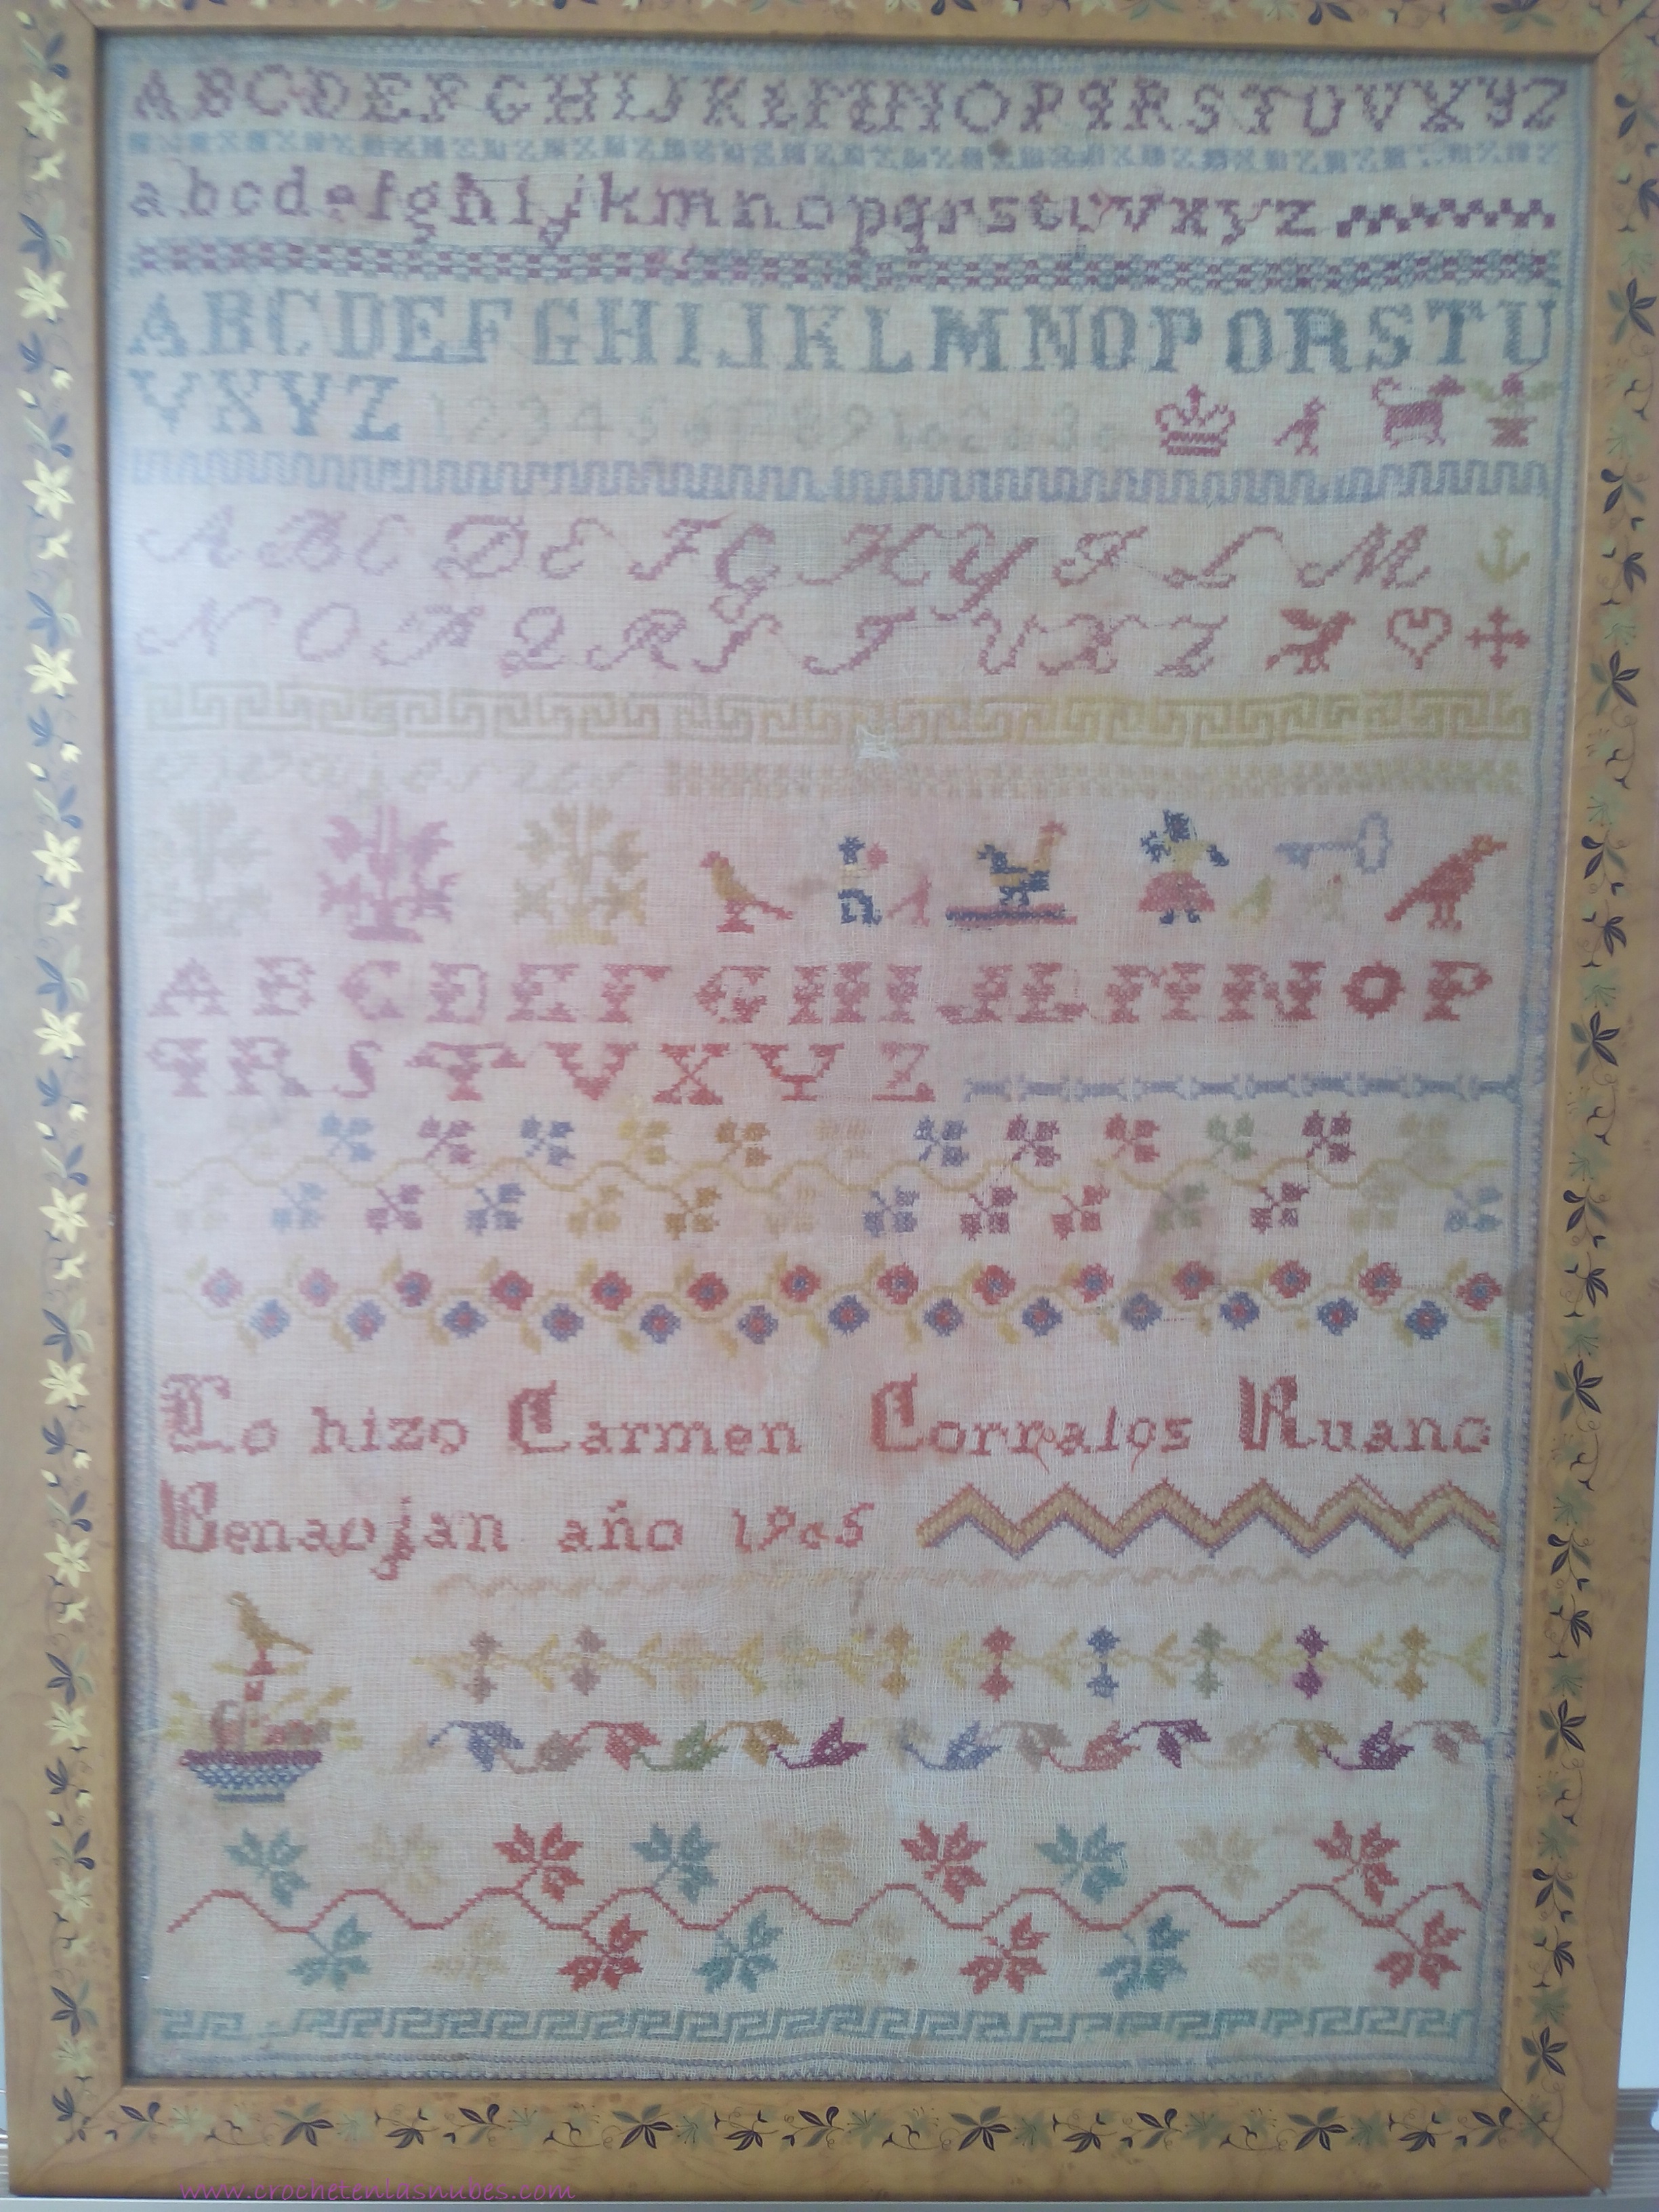 ABCDEFGHIJKLMNOPqRSTUVXYZ
abcdefghijkmnopqrstuvxyz
ABCDEFGHIJKLMNOPQRSTU
VXYZ 1234567891o2o3o
ABCDEFGHYILM
NOPQRSTUVXZ
ABCDEFGHIJLMNOP
qRSTVXYZ
Lo hizo Carmen Corrales Ruano
Benaojan año 1905
www.crochetenlasnubes.com